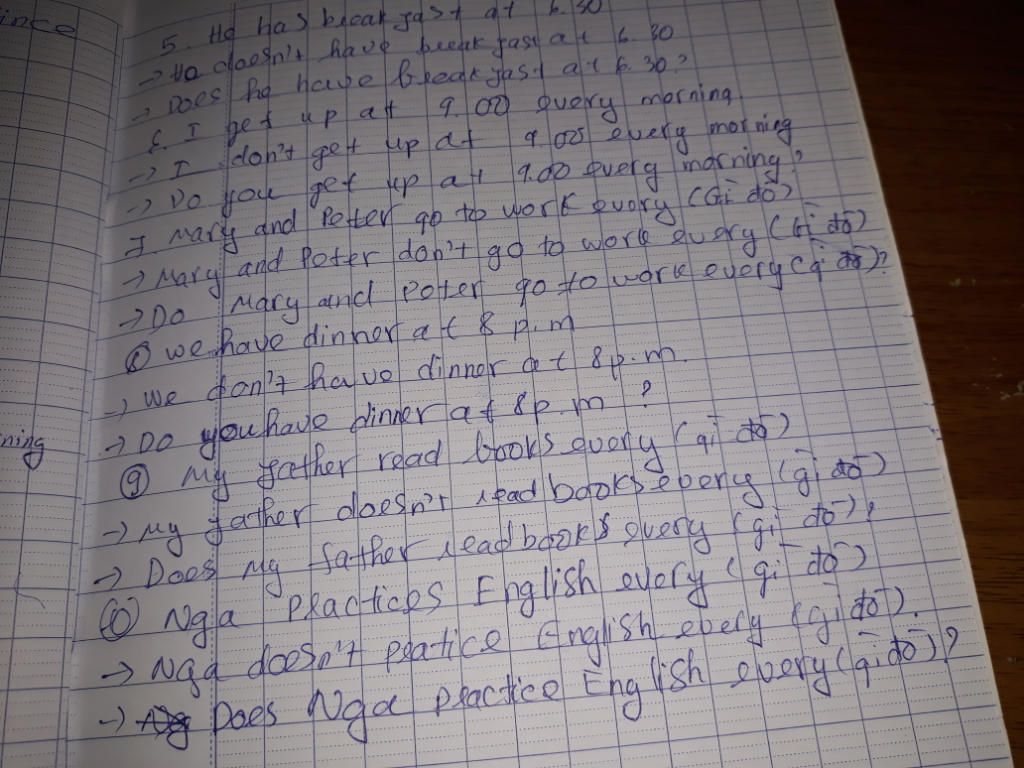 ince
5. He has breakfast at 6.30
→ He doesn't have breakfast at 6.30
→ Does he have breakfast at 6.30?
6. I get up at 9.00 every morning
→ I don't get up at 9.00 every morning
→ Do you get up at 9.00 every morning?
7. Mary and Peter go to work every (Gì đó)
→ Mary and Peter don't go to work every (Gì đó)
→ Do Mary and Peter go to work every (gì đó)?
8 We have dinner at 8 p.m
→ We don't have dinner at 8 p.m.
→ Do you have dinner at 8 p.m ?
ning
9 My father read books every (gì đó)
→ My father doesn't read books every (gì đó)
→ Does my father read books every (gì đó)?
10 Nga practices English every (gì đó)
→ Nga doesn't pratice English every (gì đó).
→ Does Nga practice English every (gì đó)?